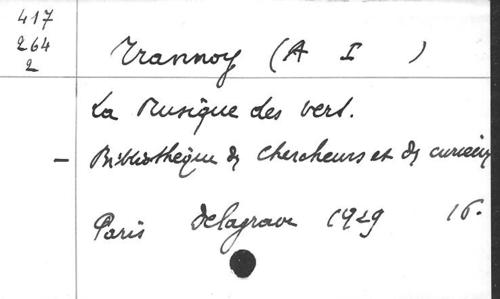 417
264
2
Trannoy (A I )
La Musique des vers.
— Bibliothèque des Chercheurs et des curieux
Paris Delagrave 1929 16.